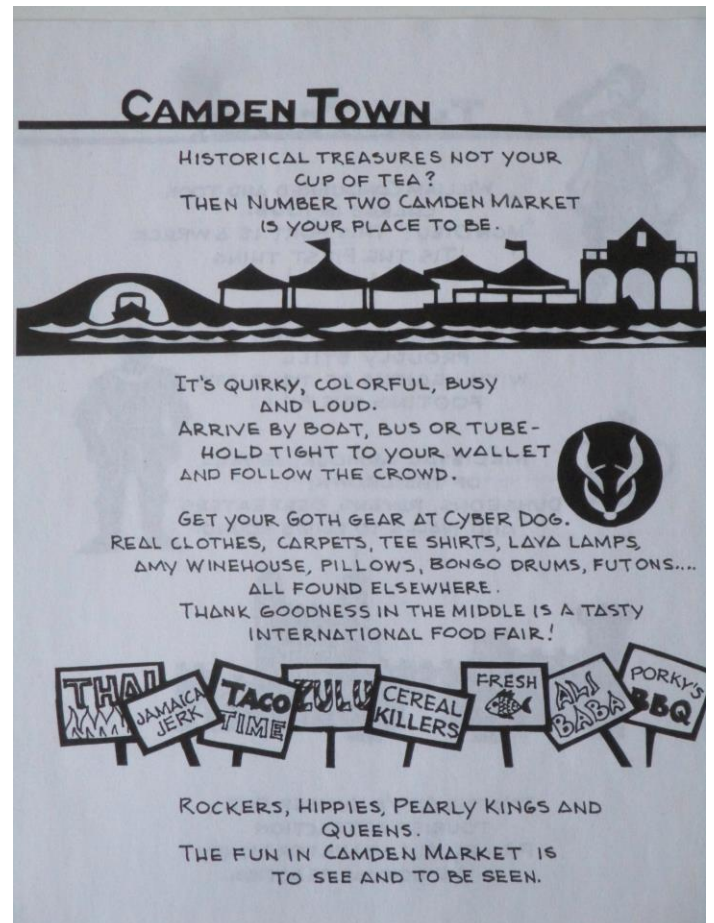 CAMDEN TOWN
HISTORICAL TREASURES NOT YOUR
CUP OF TEA?
THEN NUMBER TWO CAMDEN MARKET
IS YOUR PLACE TO BE.
IT'S QUIRKY, COLORFUL, BUSY
AND LOUD.
ARRIVE BY BOAT, BUS OR TUBE-
HOLD TIGHT TO YOUR WALLET
AND FOLLOW THE CROWD.
GET YOUR GOTH GEAR AT CYBER DOG.
REAL CLOTHES, CARPETS, TEE SHIRTS, LAVA LAMPS,
AMY WINEHOUSE, PILLOWS, BONGO DRUMS, FUTONS....
ALL FOUND ELSEWHERE.
THANK GOODNESS IN THE MIDDLE IS A TASTY
INTERNATIONAL FOOD FAIR!
THAI
JAMAICA
JERK
TACO
TIME
ZULU
CEREAL
KILLERS
FRESH
ALI
BABA
PORKY'S
BBQ
ROCKERS, HIPPIES, PEARLY KINGS AND
QUEENS.
THE FUN IN CAMDEN MARKET IS
TO SEE AND TO BE SEEN.